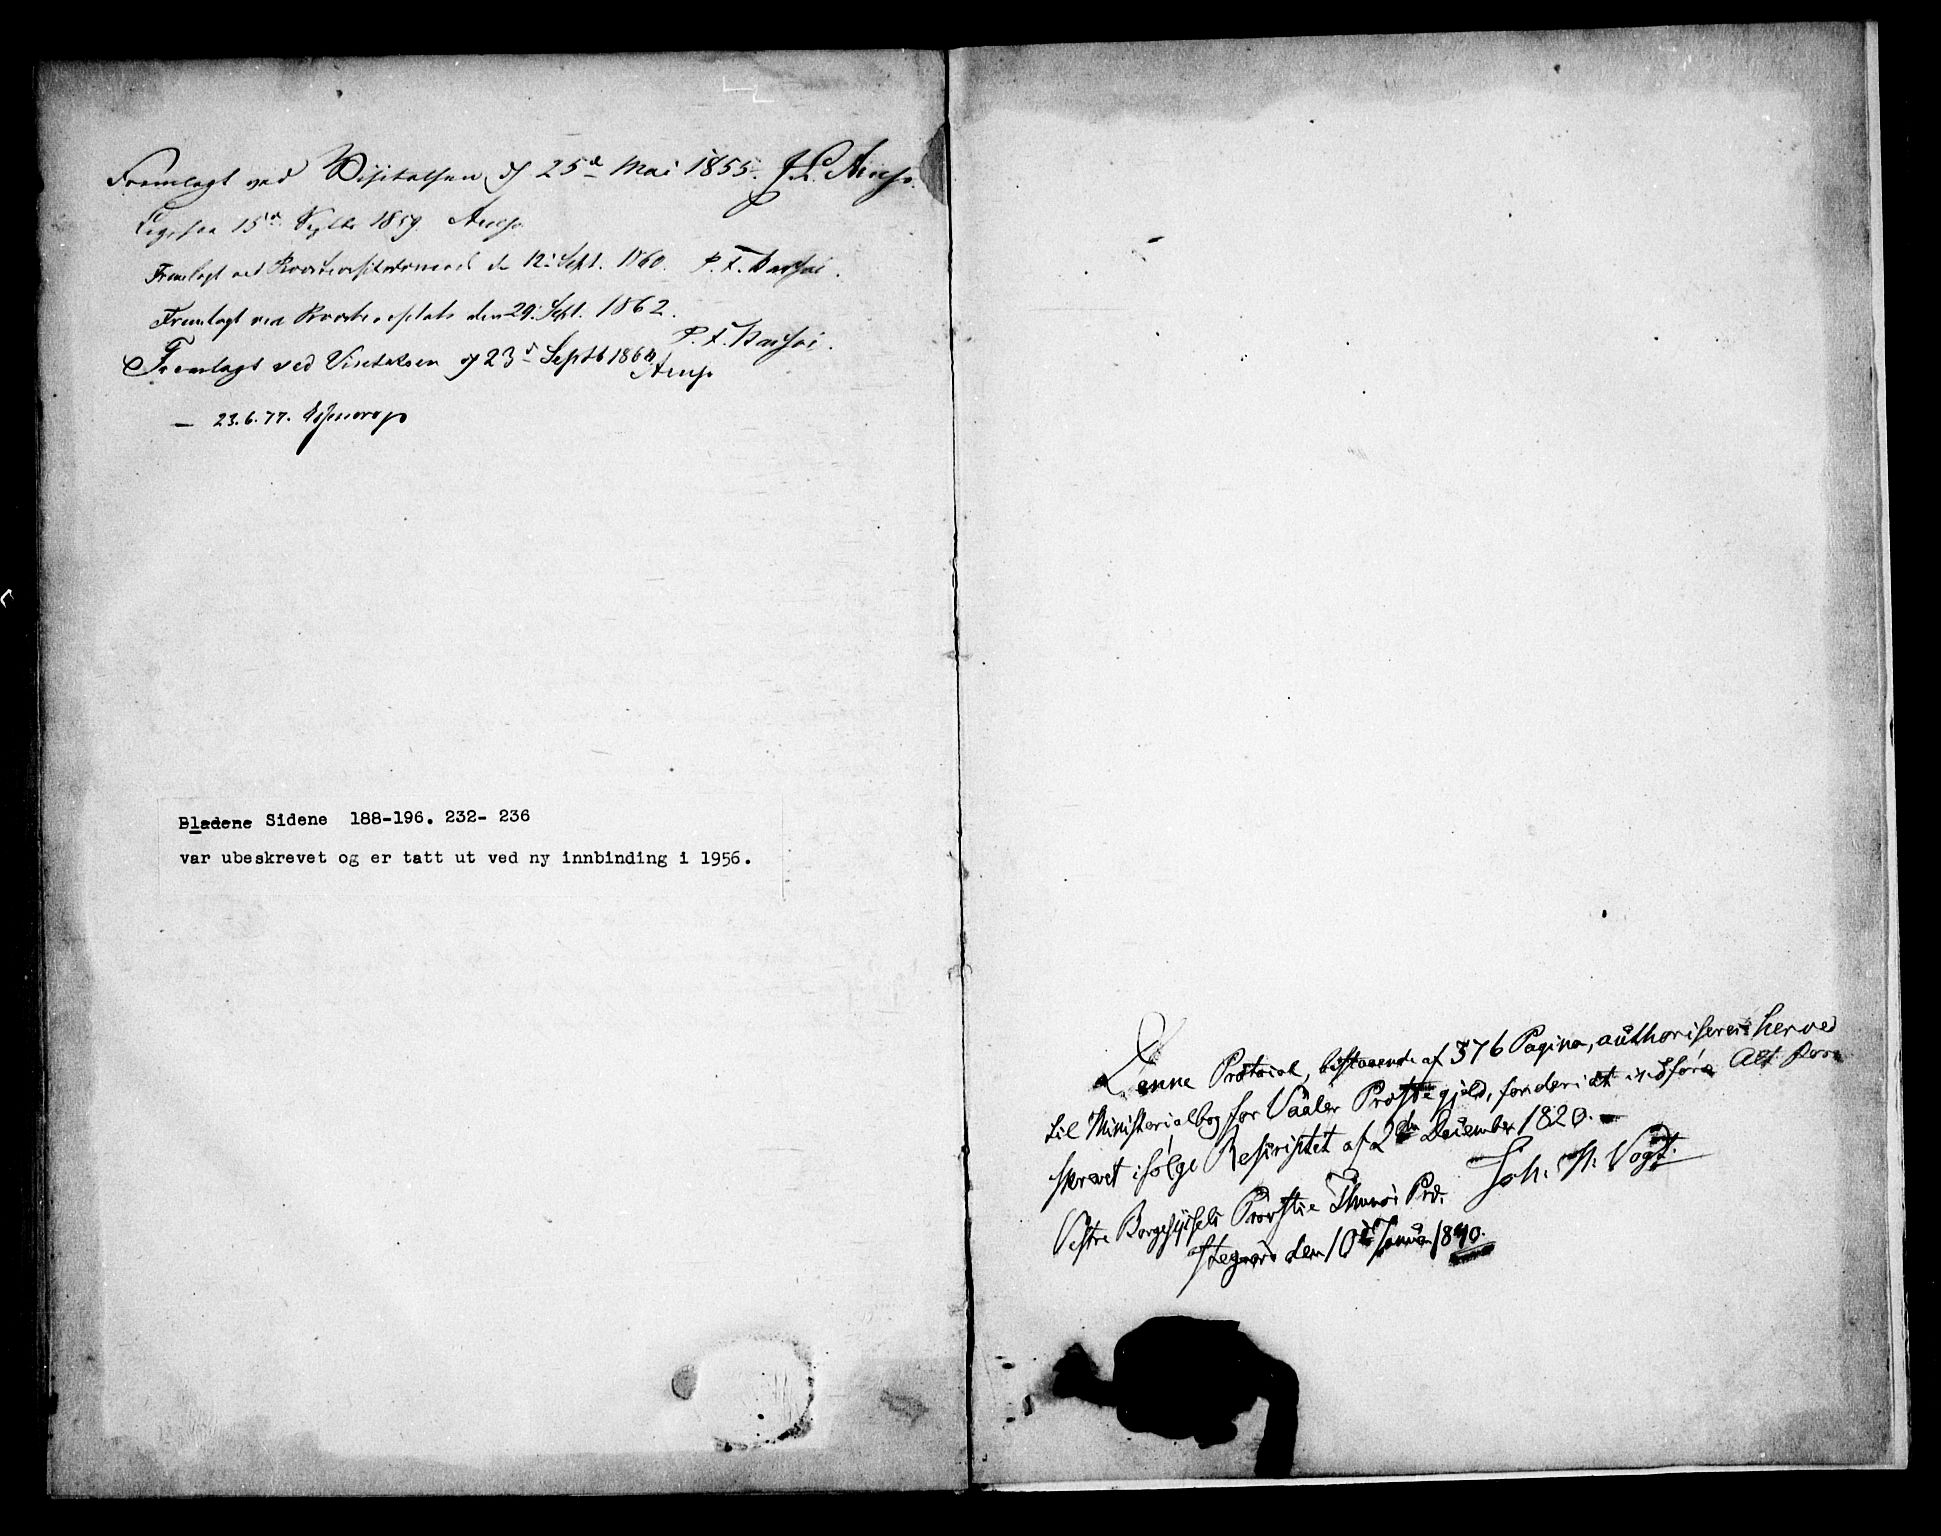 Fremlagt ved Visitatsen d 25d Mai 1855. J. L. Arup.
Ligesaa 15d Septbr 1859 Arup
Fremlagt ved den 12. Sept. 1860. P. F. Bassøe.
Fremlagt ved den 29. Sept. 1862.
P. F. Bassøe.
Fremlagt ved Visitatsen d 23d Septb 186 Arup
— 23.6.77. Essendrop
Bladene Sidene 188-196. 232- 236
var ubeskrevet og er tatt ut ved ny innbinding i 1956.
Denne Protocol, bestaaende af 376 Pagina, authoriseres herved
til Ministerialbog for Vaaler Præstegjeld, for deri at indføre Alt fore
skrevet ifølge Rescriptet af 2den December 1820. —
Vestre Borgesyssels Provstie Thunøe Prd. Joh. H. Vogt.
gaard den 10de Januar 1840.